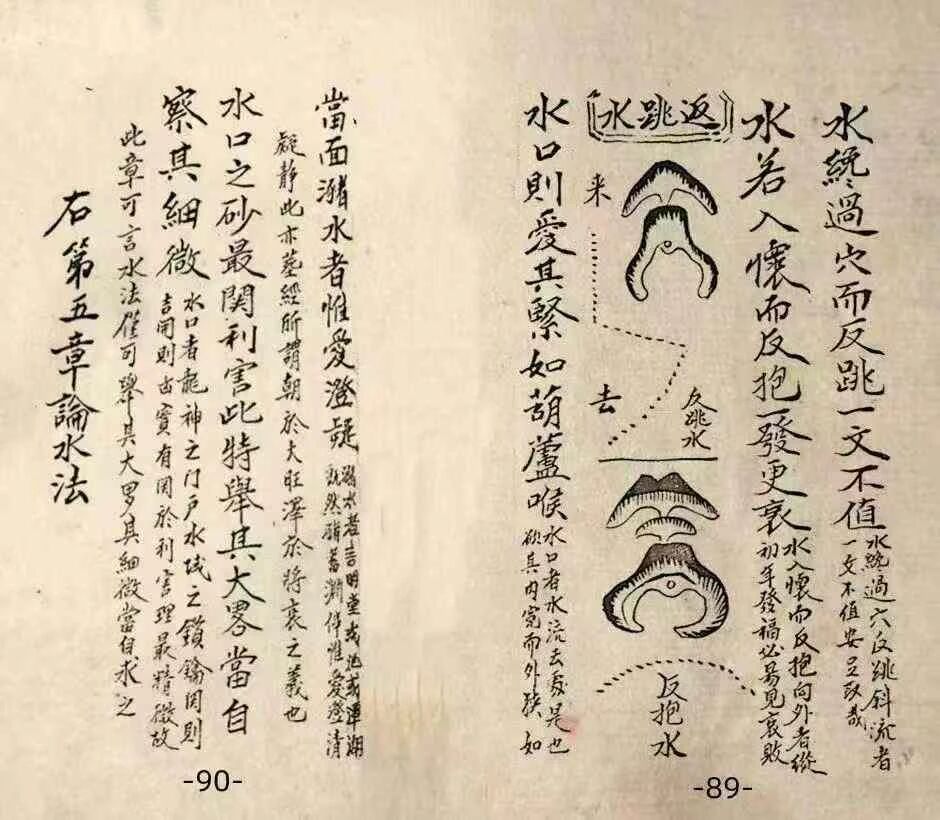 水纔過穴而反跳一文不值
水纔過穴反跳斜流者
一文不值安足取哉
水若入懷而反抱一發更衰
水入懷而反抱向外者縱
初年發福必易見衰敗
返跳水
来
去
反跳水
反抱水
水口則愛其緊如葫蘆喉
水口者水流去處是也
欲其內寬而外狹如
-89-
當面瀦水者惟愛澄凝
瀦水者言明堂或池或潭湖
既然瀦蓄淵停惟愛澄清
凝静此亦葬經所謂朝於大旺澤於將衰之義也
水口之砂最関利害此特舉其大畧當自
察其細微
水口者龍神之门戶水城之鎖鑰関則
吉開則凶實有関於利害理最精微故
此章可言水法僅可舉其大畧其細微當自求之
右第五章論水法
-90-